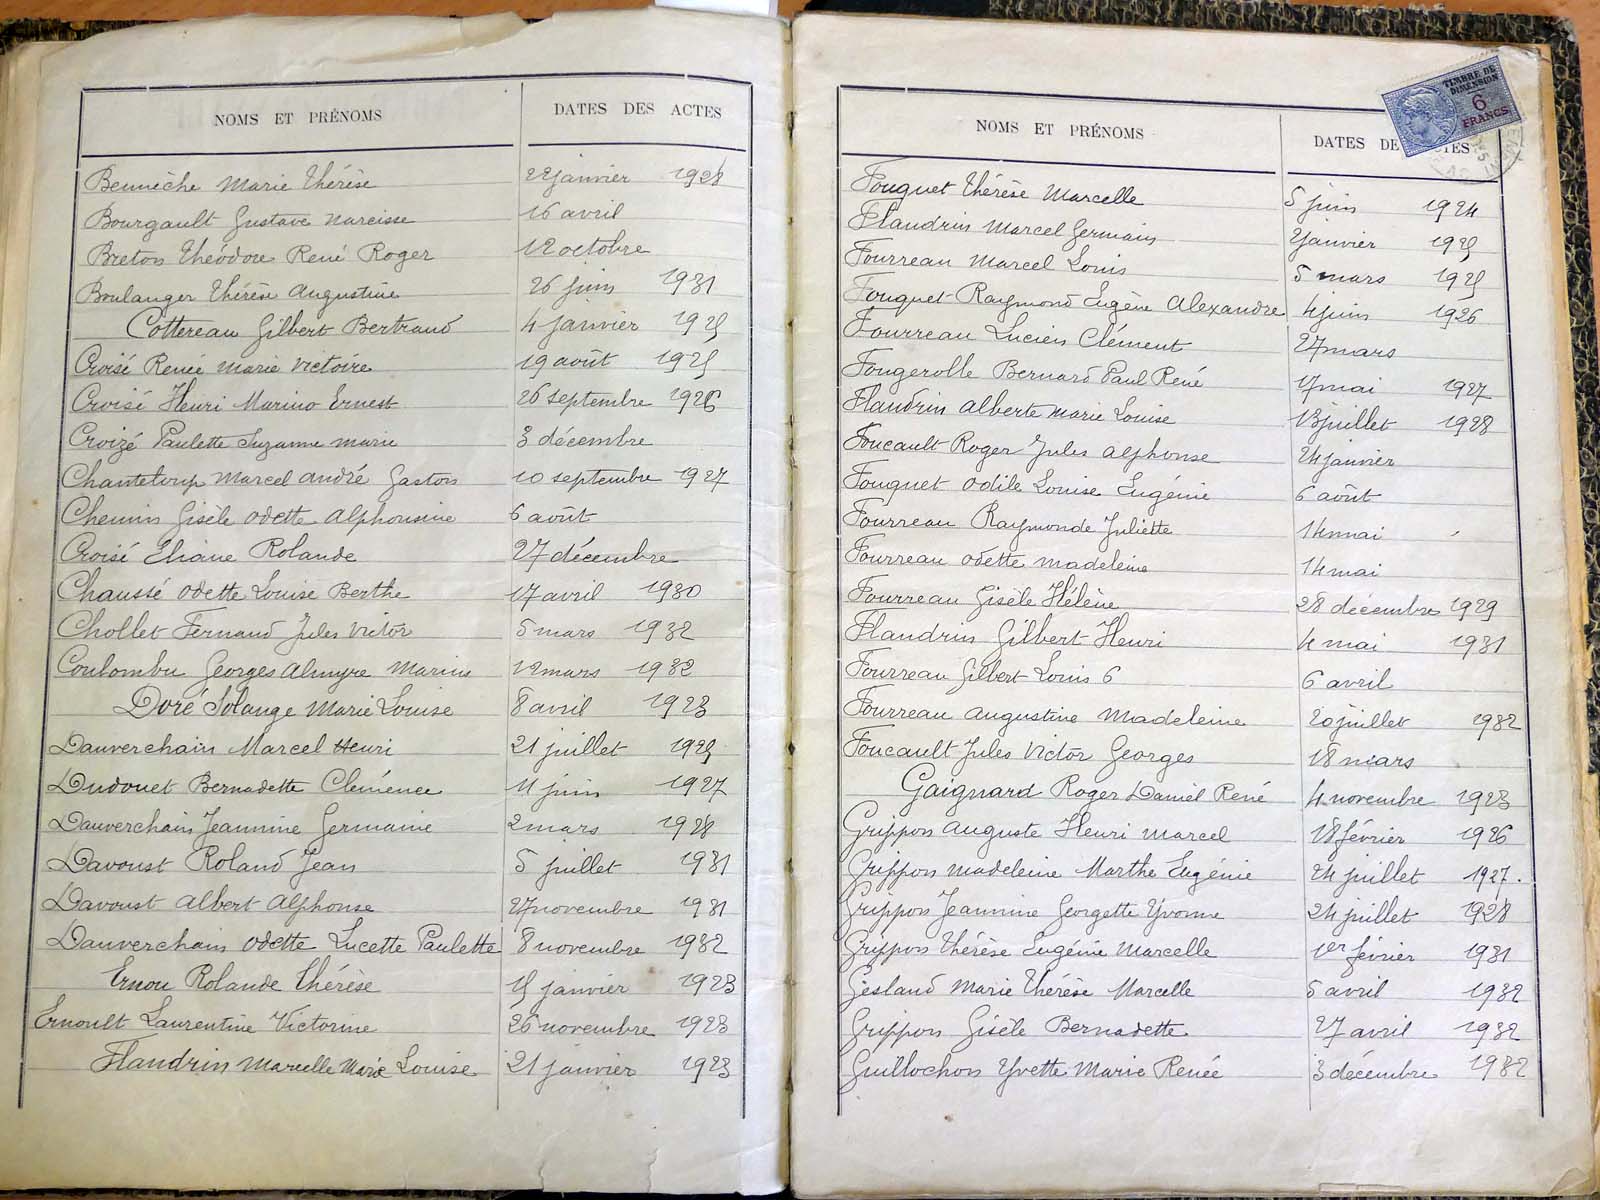 NOMS ET PRÉNOMS DATES DES ACTES
Bennèche Marie Thérèse 22 janvier 1928
Bourgault Gustave Narcisse 16 avril
Breton Théodore René Roger 12 octobre
Boulanger Thérèse Augustine 26 juin 1931
Cottereau Gilbert Bertrand 4 janvier 1925
Croisé Renée Marie Victoire 19 août 1925
Croisé Henri Marino Ernest 26 septembre 1926
Croizé Paulette Suzanne Marie 3 décembre
Chanteloup Marcel André Gaston 10 septembre 1927
Chemin Gisèle Odette Alphonsine 6 août
Croisé Eliane Rolande 27 décembre
Chaussé Odette Louise Berthe 17 avril 1930
Chollet Fernand Jules Victor 5 mars 1932
Coulombu Georges Almyre Marius 12 mars 1932
Doré Solange Marie Louise 8 avril 1923
Dauverchain Marcel Henri 21 juillet 1925
Dudouet Bernadette Clémence 11 juin 1927
Dauverchain Jeannine Germaine 2 mars 1928
Davoust Roland Jean 5 juillet 1931
Davoust Albert Alphonse 27 novembre 1931
Dauverchain Odette Lucette Paulette 8 novembre 1932
Ernou Rolande Thérèse 15 janvier 1923
Ernoult Laurentine Victorine 26 novembre 1923
Flandrin Marcelle Marie Louise 21 janvier 1923
TIMBRE DE
DIMENSION
6
FRANCS
NOMS ET PRÉNOMS DATES DE TES
Fouquet Thérèse Marcelle 5 juin 1924
Flandrin Marcel Germain 2 janvier 1925
Fourreau Marcel Louis 5 mars 1925
Fouquet Raymond Eugène Alexandre 4 juin 1926
Fourreau Lucien Clément 27 mars
Fougerolle Bernard Paul René 17 mai 1927
Flandrin Alberte Marie Louise 13 juillet 1928
Foucault Roger Jules Alphonse 24 janvier
Fouquet Odile Louise Eugénie 6 août
Fourreau Raymonde Juliette 14 mai
Fourreau Odette Madeleine 14 mai
Fourreau Gisèle Hélène 28 décembre 1929
Flandrin Gilbert Henri 4 mai 1931
Fourreau Gilbert Louis 6 6 avril
Fourreau Augustine Madeleine 20 juillet 1932
Foucault Jules Victor Georges 18 mars
Gaignard Roger Daniel René 4 novembre 1923
Grippon Auguste Henri Marcel 18 février 1926
Grippon Madeleine Marthe Eugénie 24 juillet 1927.
Grippon Jeannine Georgette Yvonne 24 juillet 1928
Grippon Thérèse Eugénie Marcelle 1er février 1931
Gesland Marie Thérèse Marcelle 5 avril 1932
Grippon Gisèle Bernadette 27 avril 1932
Guillochon Yvette Marie Renée 3 décembre 1932